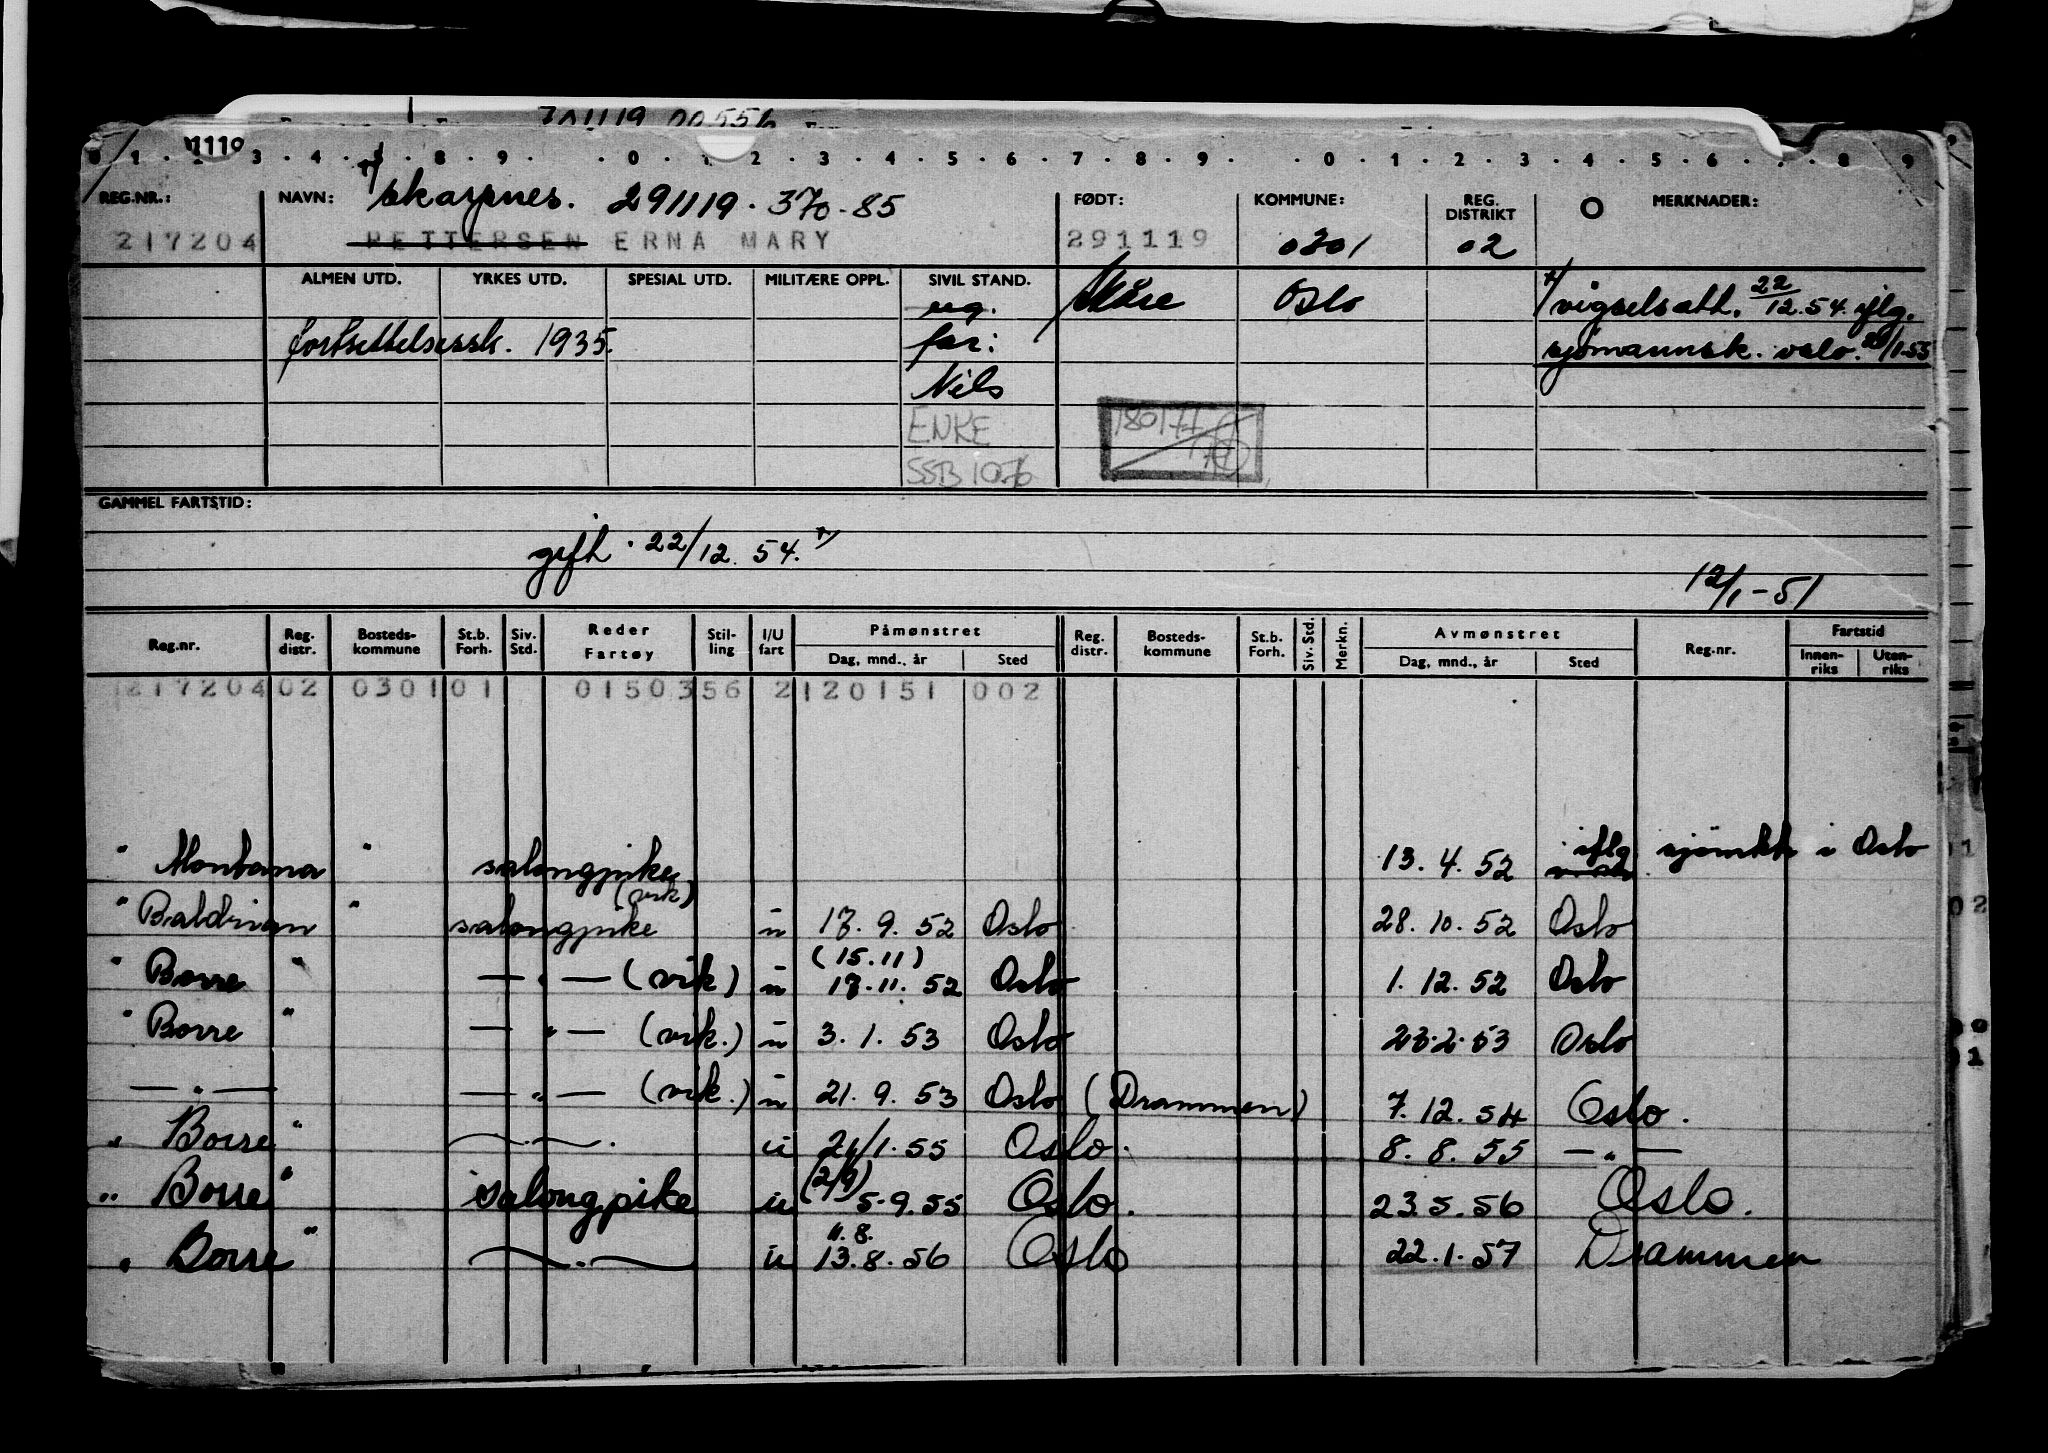 1119
0 1 2 3 4 5 8 9 0 1 2 3 4 5 6 7 8 9 0 1 2 3 4 5 6 8 9
REG.NR.: NAVN: Skarpnes. 291119. 370-85 FØDT: KOMMUNE: REG. DISTRIKT O MERKNADER:
217204 PETTERSEN ERNA MARY 291119 0301 02
ALMEN UTD. YRKES UTD. SPESIAL UTD. MILITÆRE OPPL. SIVIL STAND.
ug. Oslo vigselsatt. 22/12.54. iflg.
fortsettelsessk. 1935. far: sjømannsk. Oslo.
Nils
ENKE 180177
SSB 1076
GAMMEL FARTSTID:
gift. 22/12. 54. x)
12/1-51
Reg.nr. Reg. distr. Bosteds- kommune St.b. Forh. Siv. Std. Reder Fartøy Stil- ling I/U fart Påmønstret Dag, mnd., år Sted Reg. distr. Bosteds- kommune St.b. Forh. Siv. Std. Merkn. Avmønstret Dag, mnd., år Sted Reg.nr. Fartstid Innen- riks Uten- riks
217204 02 0301 01 01503 56 2 120151 002
" Montana " salongpike 13. 4. 52 iflg sjømkk i Oslo
(vik)
" Baldrian " salongpike u 17. 9. 52 Oslo 28. 10. 52 Oslo
(15.11)
" Borre " — " — (vik) u 17. 11. 52 Oslo 1. 12. 52 Oslo
" Borre " — " — (vik.) u 3. 1. 53 Oslo 23.2.53 Oslo
— " — — " — (vik.) u 21. 9. 53 Oslo (Drammen) 7. 12. 54 Oslo.
" Borre " — " — u 21/1. 55 Oslo. 8. 8. 55 — " —
(2/9)
" Borre " salongpike u 5.9.55 Oslo. 23.5.56 Oslo.
11.8.
" Borre " — " — u 13.8.56 Oslo 22.1.57 Drammen